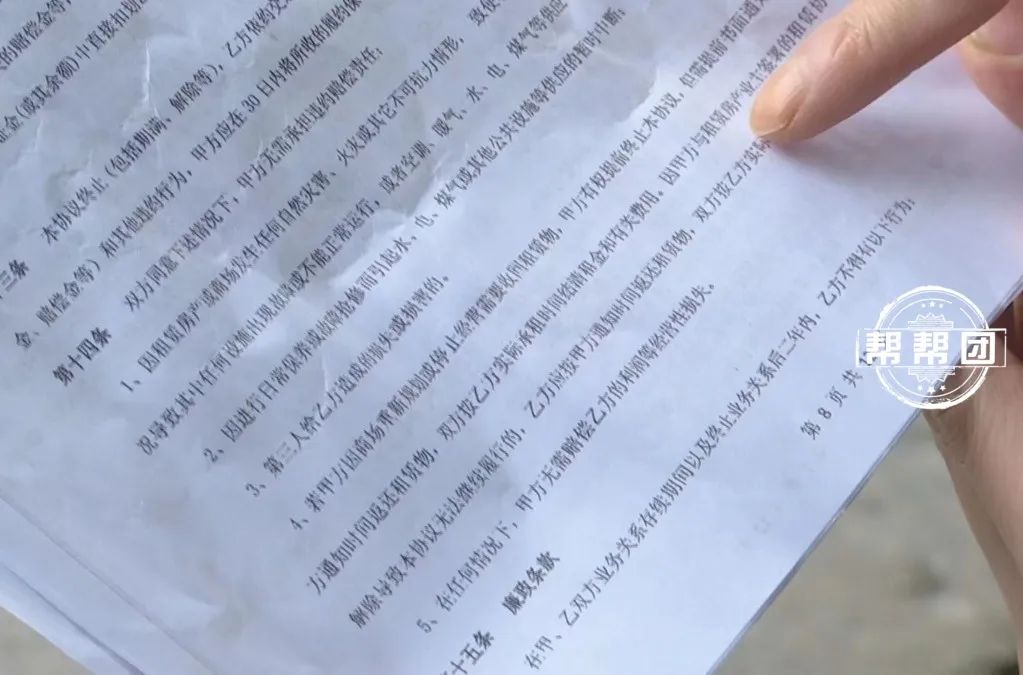 的赔偿金等
金(或其余额)中直接扣
本协议终止(包括期满,解除等),乙方依约交
三条
金、赔偿金等)和其他违约行为,甲方应在30日内将所收的履约保
第十四条 双方同意下述情况下,甲方无需承担违约赔偿责任:
1、因租赁房产或商场发生任何自然灾害、火灾或其它不可抗力情形,致使
况导致其中任何设施出现故障或不能正常运行,或者空调、暖气、水、电、煤气等供应
2、因进行日常保养或故障抢修而引起水、电、煤气或其他公共设施等供应的暂时中断;
3、第三人给乙方造成的损失或损害的。
4、若甲方因商场重新规划或停止经营需要收回租赁物,甲方有权提前终止本协议,但需提前书面通
方通知时间返还租赁物,双方按乙方实际承租时间结清租金和有关费用。因甲方与租赁房产业主签署的租赁协
解除导致本协议无法继续履行的,乙方应按甲方通知时间返还租赁物,双方按乙方实际
5、在任何情况下,甲方无需赔偿乙方的利润等经济性损失。
十五条 廉政条款
在甲、乙双方业务关系存续期间以及终止业务关系后二年内,乙方不得有以下行为:
第 8 页 共
帮帮团